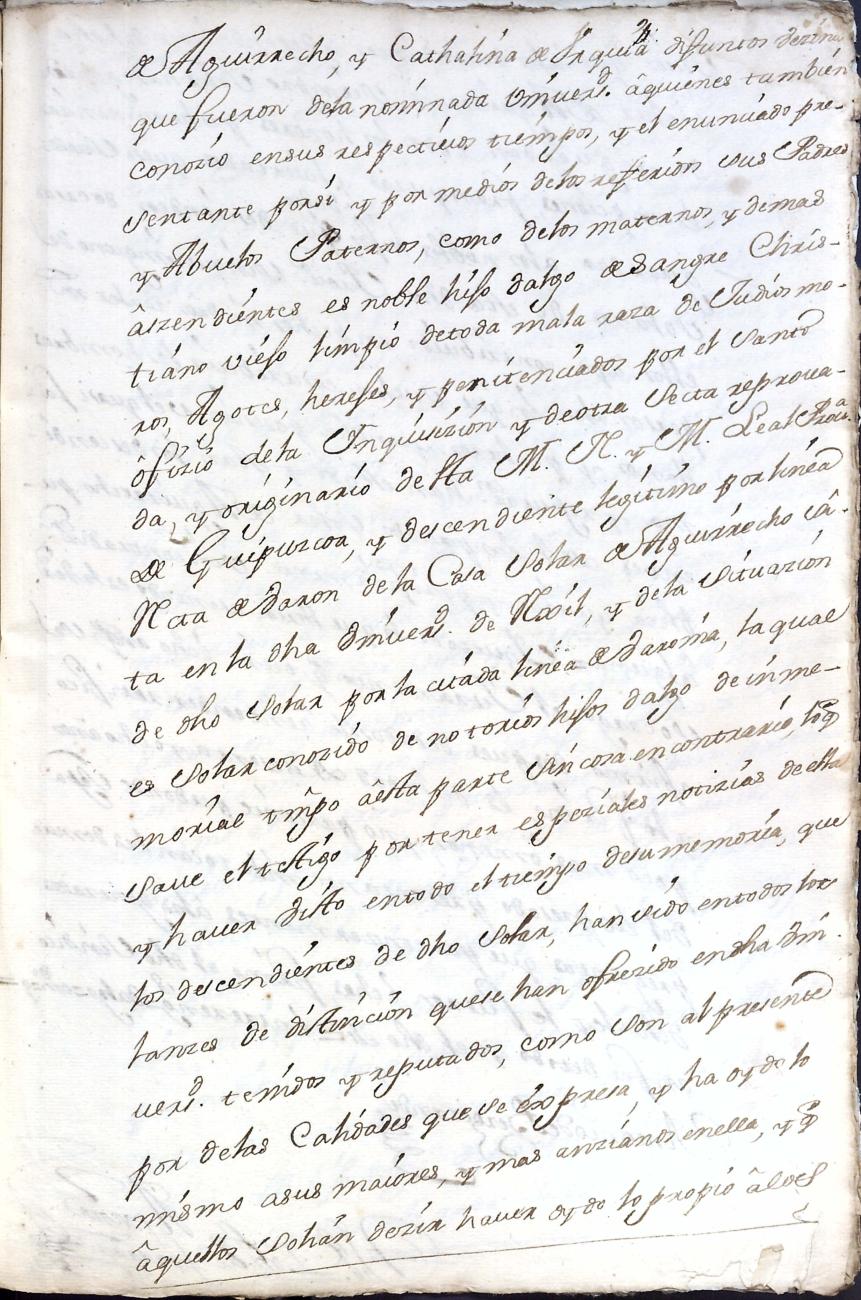 de Aguirrecho, y Cathalina de Irquia difuntos dezina
que fueron dela nominnada Vniversd. âquienes tambien
conozió ensus respectivos tiempos, y el enunciado pre-
sentante porsi y por medios delos referidos sus Padres
y Abuelos Paternos, como delos maternos, y demas
âszendientes es noble hijo dalgo de Sangre Chris-
tiano viejo limpio detoda mala raza de Judios mo-
ros, Agotes, herejes, y penitenciados por el Santo
ôfizio dela Inquisizion y deotra Secta reprova-
da, y originario desta M. N. y M. Leal Prova.
De Guipuzcoa, y descendiente legitimo por linea
Recta de Varon dela Casa Solar de Aguirrecho câ-
ta en la dha Vniversd. de y dela Situazion
de dho Solar por la citada linea de Varonia, la qual
es Solar conozido de notorios hijos dalgo de inme-
morial tmpo âesta parte Sin cosa en contrario, loq
save el testigo por tener espeziales notizias de ella
y haver visto entodo el tiempo desu memoria, que
los descendientes de dho Solar, han sido entodos los
lanzes de distincion quese han ofrezido endha Vni-
versd. tenidos y reputados, como Son al presente
por delas Calidades que se éxpresa, y ha oydo lo
mismo asus maiores, y mas anzianos enella, y q
âquellos Solian dezir haver oydo lo propio âlos